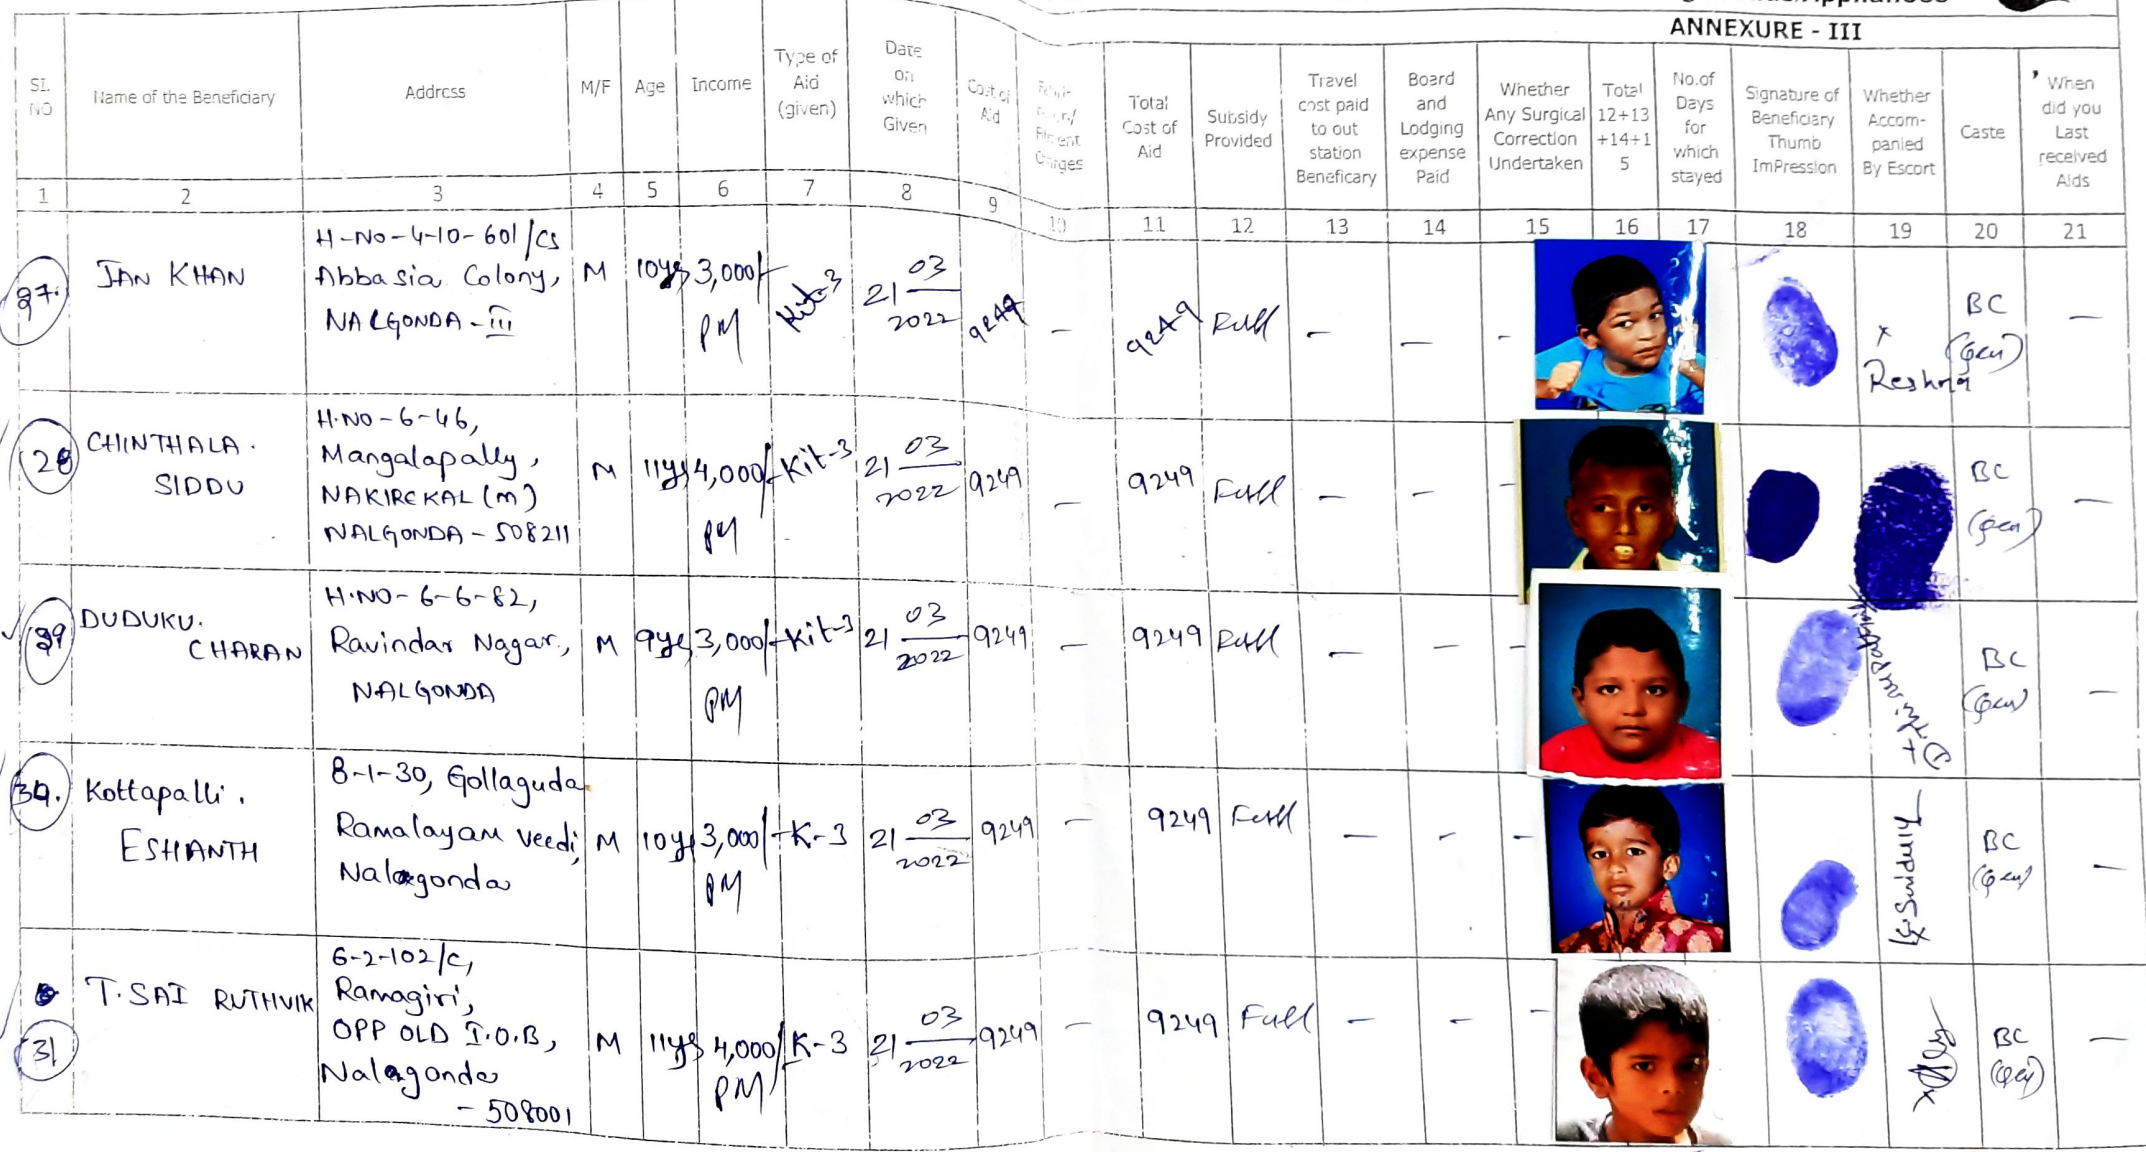 ANNEXURE - III
SI. NO
Name of the Beneficiary
Address
M/F
Age
Income
Type of Aid (given)
Date on which Given
Cost of Aid
Total Cost of Aid
Subsidy Provided
Travel cost paid to out station Beneficary
Board and Lodging expense Paid
Whether Any Surgical Correction Undertaken
Total 12+13 +14+1 5
No.of Days for which stayed
Signature of Beneficiary Thumb ImPression
Whether Accom- panied By Escort
Caste
When did you Last received Aids
1 2 3 4 5 6 7 8 9 10 11 12 13 14 15 16 17 18 19 20 21
27.
JAN KHAN
H-NO-4-10-601/CS
Abbasia Colony,
NALGONDA - III
M 10ys 3,000/- PM
Kit-3
21 03 2022
9249 - 9249 Full - - -
Reshma
BC (Gen) -
28
CHINTHALA.
SIDDU
H.NO-6-46,
Mangalapally,
NAKIREKAL (m)
NALGONDA - 508211
M 11ys 4,000/- PM
Kit-3
21 03 2022
9249 - 9249 Full - - -
BC (Gen) -
29
DUDUKU.
CHARAN
H.NO-6-6-82,
Ravindar Nagar,
NALGONDA
M 9ys 3,000/- PM
Kit-3
21 03 2022
9249 - 9249 Full - - -
BC (Gen) -
30.
Kottapalli.
ESHANTH
8-1-30, Gollaguda
Ramalayam veedi,
Nalagonda
M 10ys 3,000/- PM
K-3
21 03 2022
9249 - 9249 Full - - -
BC (Gen) -
31
T.SAI RUTHVIK
6-2-102/C,
Ramagiri,
OPP OLD I.O.B,
Nalagonda
- 508001
M 11ys 4,000/- PM
K-3
21 03 2022
9249 - 9249 Full - - -
BC (Gen) -